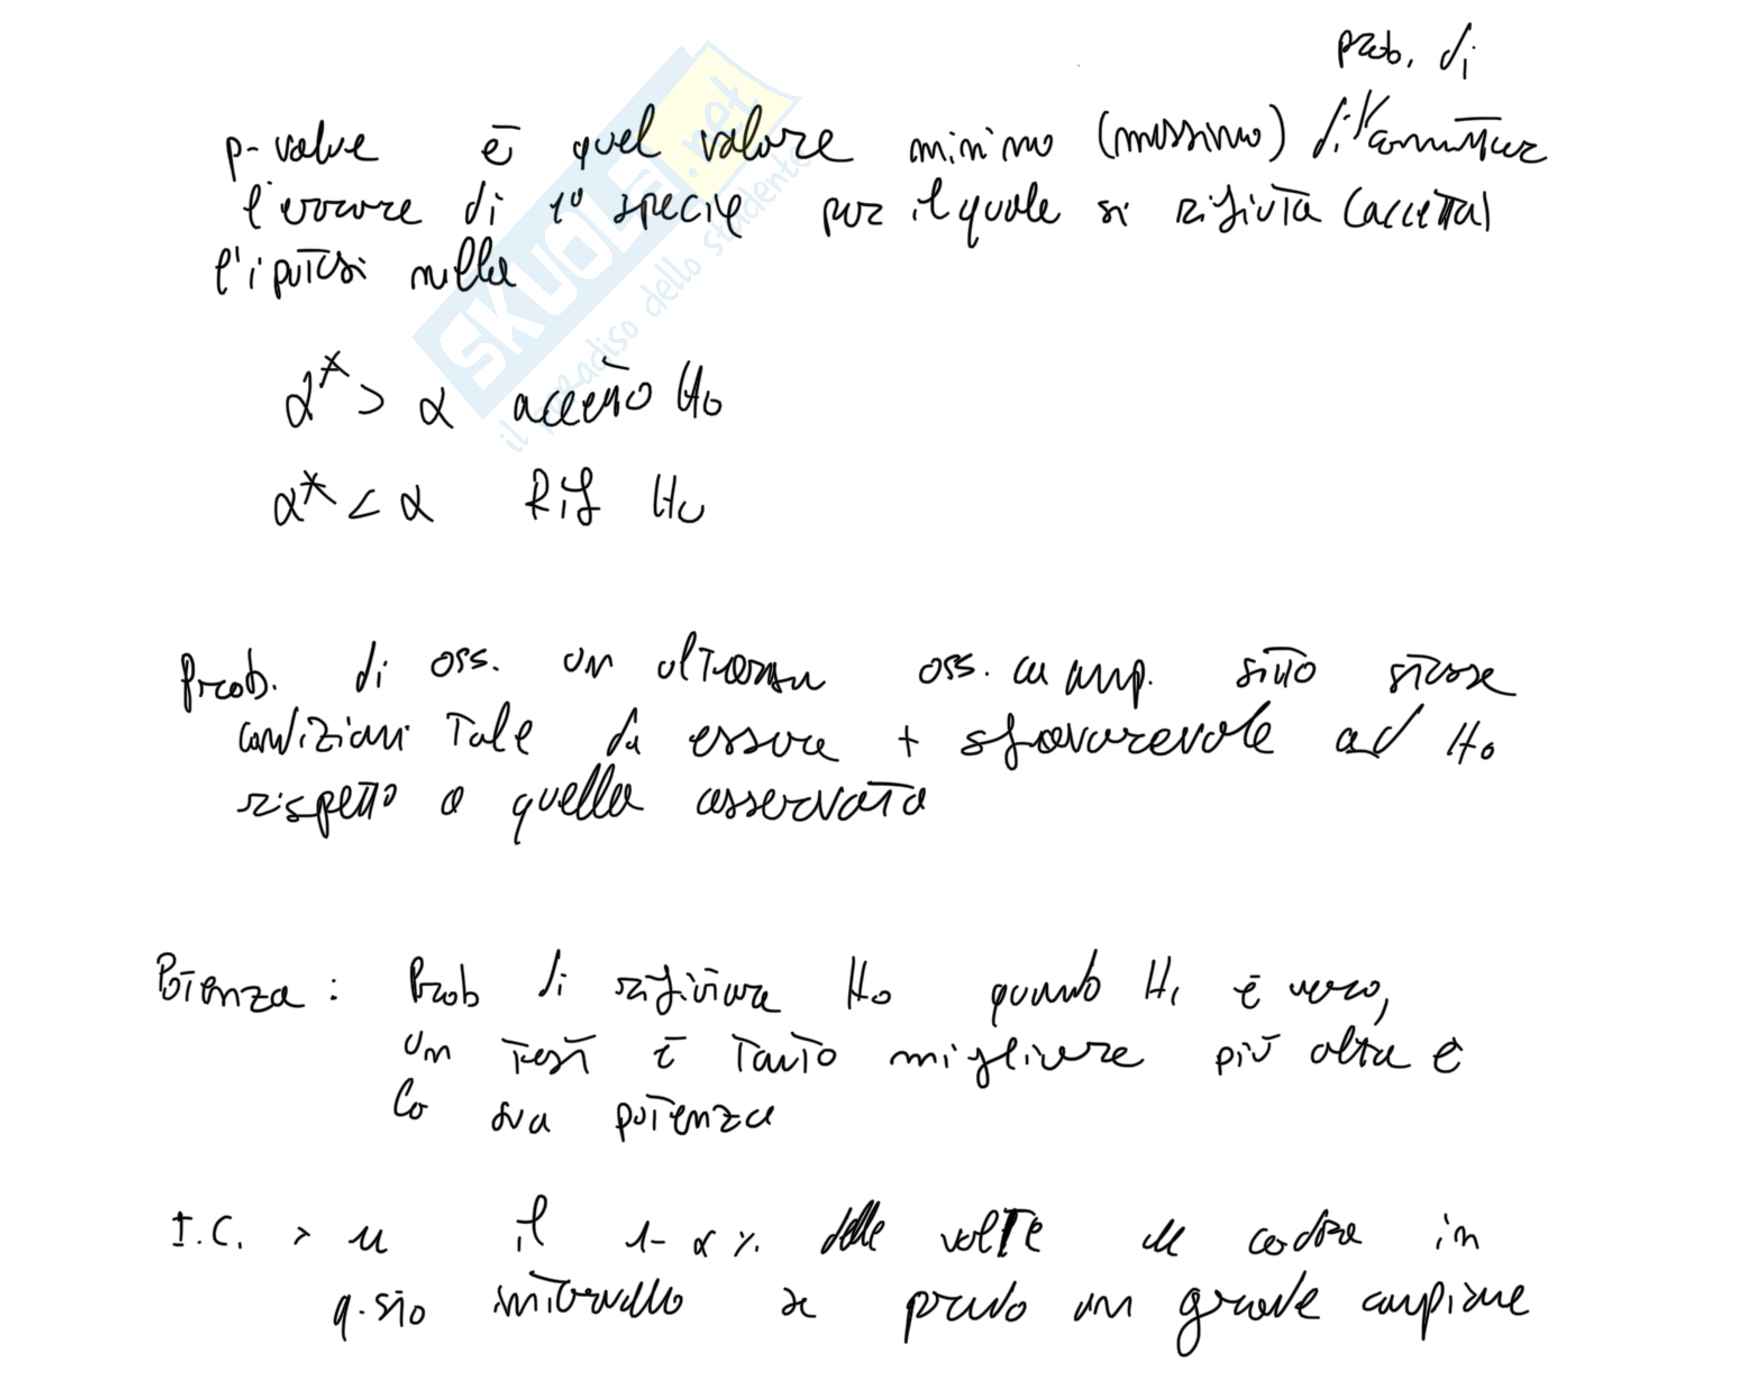 prob. di
p-value è quel valore minimo (massimo) di commettere
l'errore di 1° specie per il quale si rifiuta (accetta)
l'ipotesi nulla
SKUOLA.net
il paradiso dello studente
α* > α accetto H0
α* < α Rif H0
Prob. di oss. un ulteriore oss. camp. sotto stesse
condizioni tale da essere + sfavorevole ad H0
rispetto a quella osservata
Potenza : Prob di rifiutare H0 quando H1 è vero,
un test è tanto migliore più alta è
la sua potenza
I.C. > μ il 1-α % delle volte μ cadrà in
q.sto intervallo se prendo un grande campione